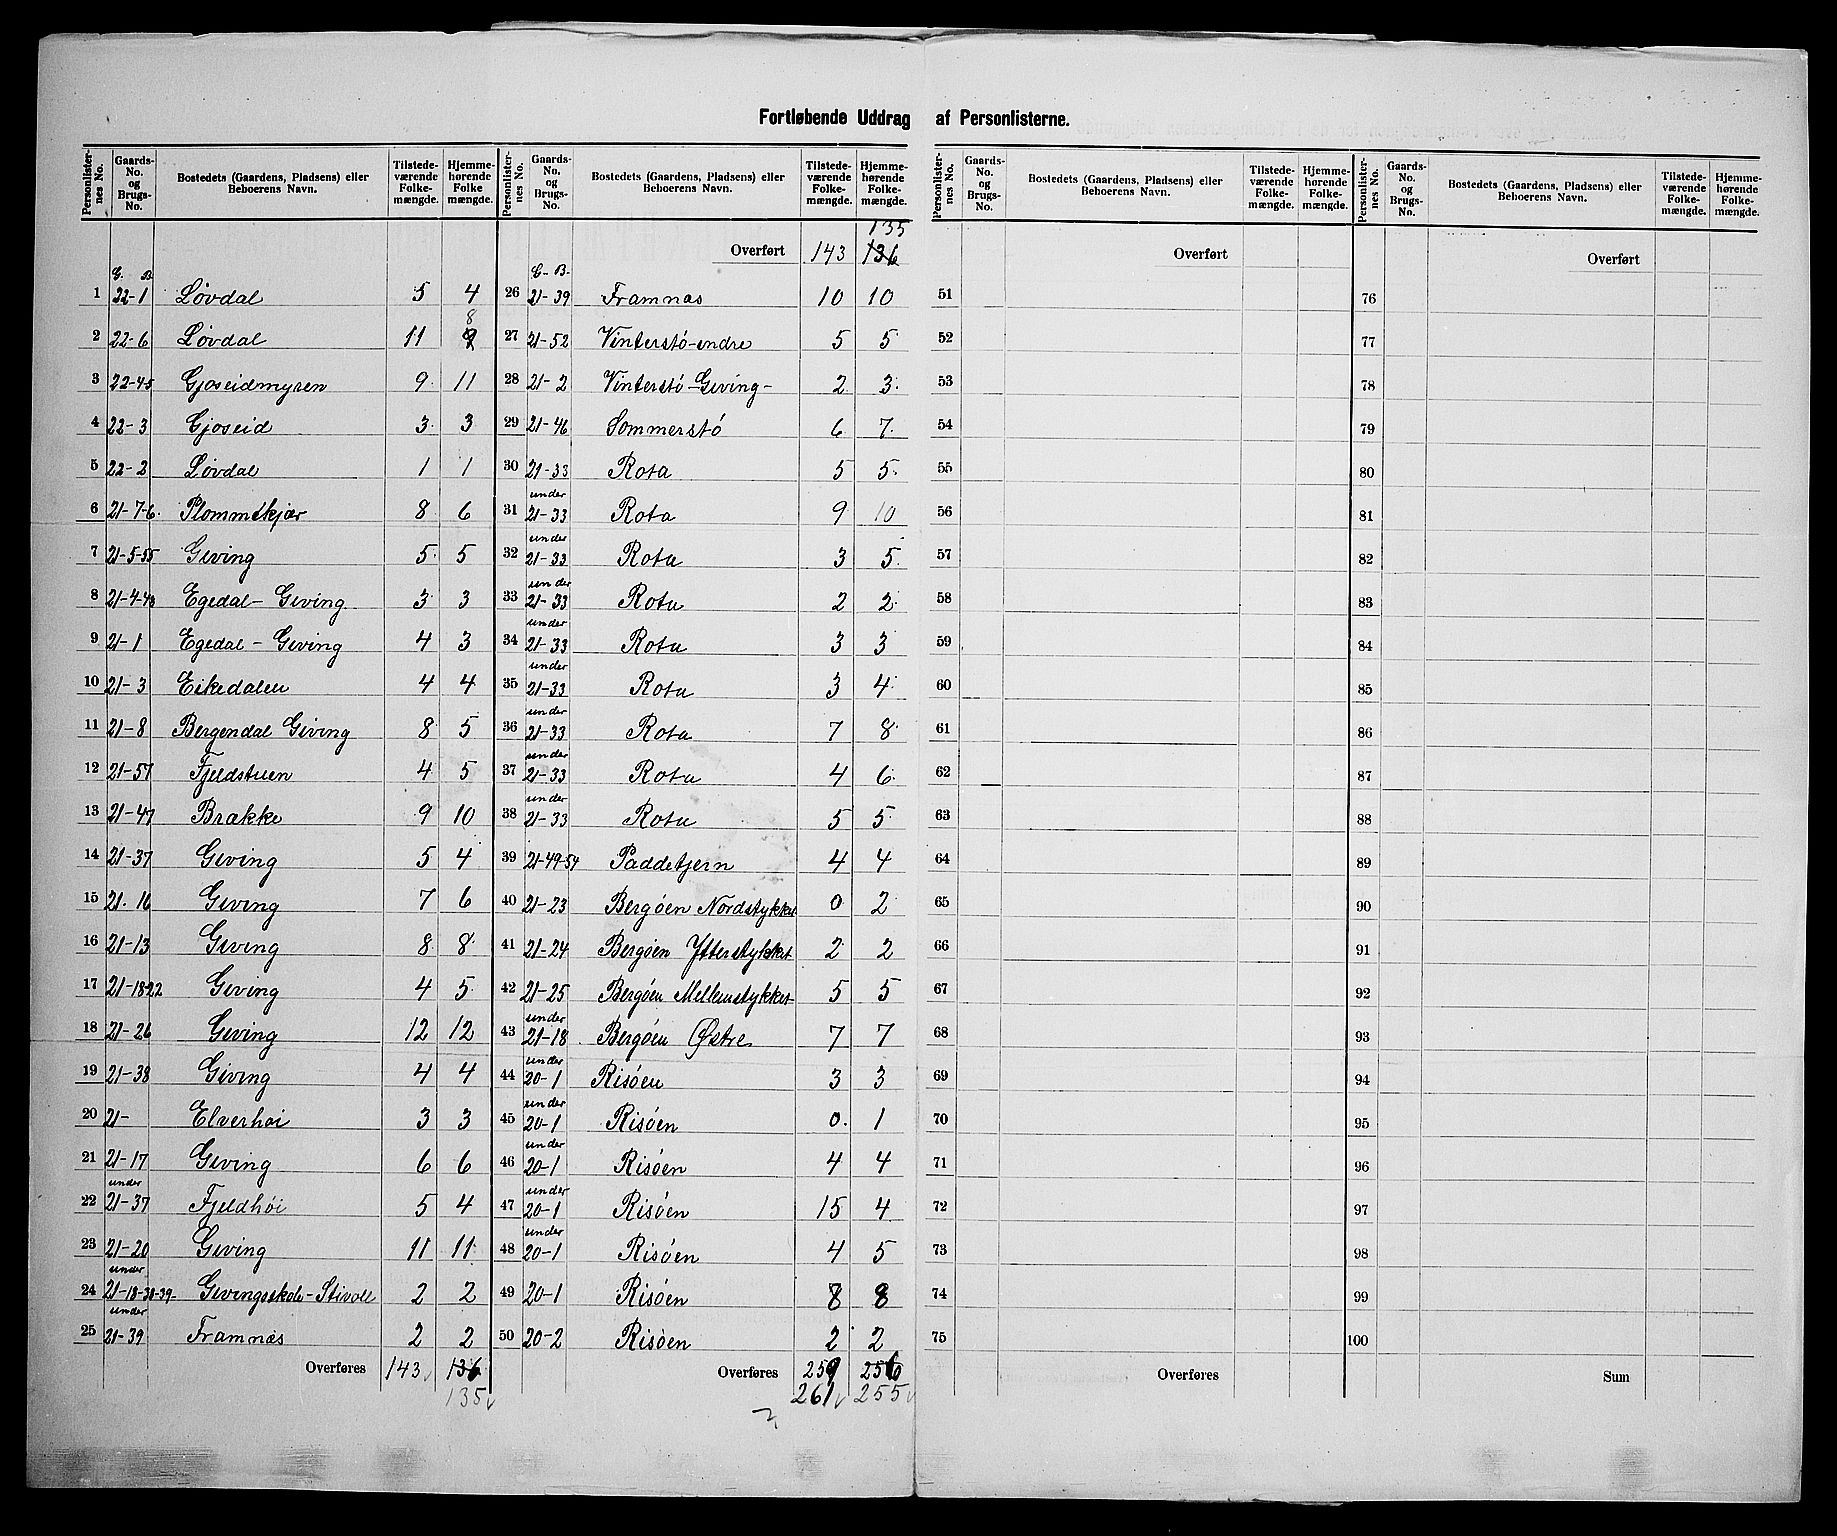 Fortløbende Uddrag af Personlisterne.
Personlister-nes No. | Gaards-No. og Brugs-No. | Bostedets (Gaardens, Pladsens) eller Beboerens Navn. | Tilstede-værende Folke-mængde. | Hjemme-hørende Folke mængde.
G. B.
1 22-1 Løvdal 5 4
2 22-6 Løvdal 11 9 8
3 22-45 Gjoseidmyren 9 11
4 22-3 Gjoseid 3 3
5 22-2 Løvdal 1 1
6 21-7-6. Plommeskjær 8 6
7 21-5-55 Geving 5 5
8 21-4-48 Egedal-Geving 3 3
9 21-1 Egedal-Geving 4 3
10 21-3 Eikedalen 4 4
11 21-8 Bergendal Geving 8 5
12 21-57 Fjeldstuen 4 5
13 21-47 Brække 9 10
14 21-37 Geving 5 4
15 21-10 Geving 7 6
16 21-13 Geving 8 8
17 21-18-22 Geving 4 5
18 21-26 Geving 12 12
19 21-38 Geving 4 4
20 21- Elverhøi 3 3
21 21-17 Geving 6 6
22 under 21-37 Fjeldhøi 5 4
23 21-20 Geving 11 11
24 under 21-18-38-39- Gevingsskole-Stivoll 2 2
25 under 21-39 Framnæs 2 2
Overføres 143 136
135
Personlister-nes No. | Gaards-No. og Brugs-No. | Bostedets (Gaardens, Pladsens) eller Beboerens Navn. | Tilstede-værende Folke-mængde. | Hjemme-hørende Folke-mængde.
135
Overført 143 136
G- B-
26 21-39 Framnæs 10 10
27 21-52 Vinterstö-indre 5 5
28 21-2 Vinterstö-Geving- 2 3
29 21-46 Sommerstö 6 7
30 21-33 Rota 5 5
31 under 21-33 Rota 9 10
32 under 21-33 Rota 3 5
33 under 21-33 Rota 2 2
34 under 21-33 Rota 3 3
35 under 21-33 Rota 3 4
36 under 21-33 Rota 7 8
37 under 21-33 Rota 4 6
38 under 21-33 Rota 5 5
39 21-49-54 Paddetjern 4 4
40 21-23 Bergöen Nordstykket 0 2
41 21-24 Bergöen Ytterstykket 2 2
42 21-25 Bergöen Mellemstykket 5 5
43 under 21-18 Bergöen Østre 7 7
44 under 20-1 Risöen 3 3
45 under 20-1 Risöen 0 1
46 under 20-1 Risöen 4 4
47 under 20-1 Risöen 15 4
48 under 20-1 Risöen 4 5
49 20-1 Risöen 8 8
50 20-2 Risöen 2 2
Overføres 259 256
261 255
Personlister-nes No. | Gaards-No. og Brugs-No. | Bostedets (Gaardens, Pladsens) eller Beboerens Navn. | Tilstede-værende Folke-mængde. | Hjemme-hørende Folke-mængde.
Overført
51
52
53
54
55
56
57
58
59
60
61
62
63
64
65
66
67
68
69
70
71
72
73
74
75
Overføres
Personlister-nes No. | Gaards-No. og Brugs-No. | Bostedets (Gaardens, Pladsens) eller Beboerens Navn. | Tilstede-værende Folke-mængde. | Hjemme-hørende Folke-mængde.
Overført
76
77
78
79
80
81
82
83
84
85
86
87
88
89
90
91
92
93
94
95
96
97
98
99
100
Sum